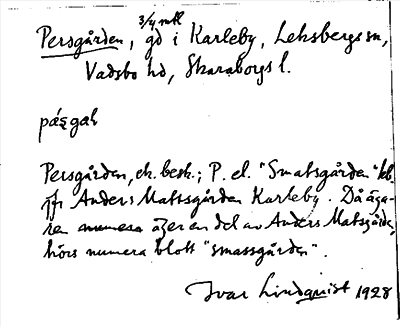 3/4 mtl
Persgården, gd i Karleby, Leksbergs sn,
Vadsbo hd, Skaraborgs l.
Persgården, ek. besk.; P. el. "Smatsgården" kb.
jfr Anders Mattsgården Karleby. Då äga-
ren numera äger en del av Anders Matsgården,
hörs numera blott "smassgården".
Ivar Lindquist 1928